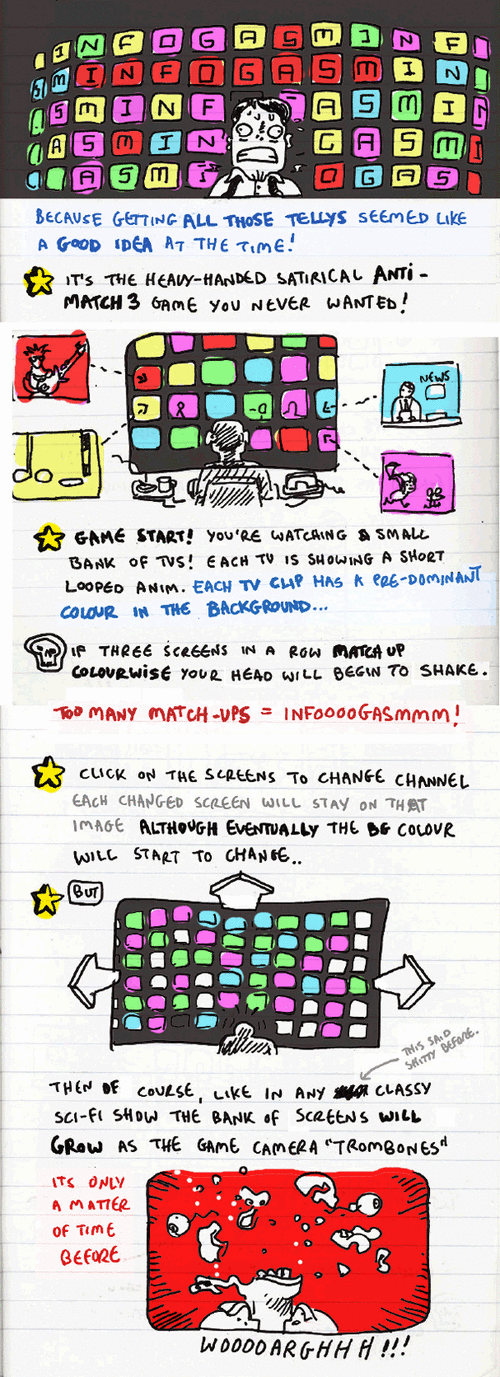 I N F O G A S M I N F
S M I N F O G A S M I N
S M I N F A S M I
A S M I N G A S M
A S M I O G A S
BECAUSE GETTING ALL THOSE TELLYS SEEMED LIKE
A GOOD IDEA AT THE TIME!
IT'S THE HEAVY-HANDED SATIRICAL ANTI-
MATCH 3 GAME YOU NEVER WANTED!
NEWS
GAME START! YOU'RE WATCHING A SMALL
BANK OF TVS! EACH TV IS SHOWING A SHORT
LOOPED ANIM. EACH TV CLIP HAS A PRE-DOMINANT
COLOUR IN THE BACKGROUND...
IF THREE SCREENS IN A ROW MATCH UP
COLOURWISE YOUR HEAD WILL BEGIN TO SHAKE.
TOO MANY MATCH-UPS = INFOOOOGASMMM!
CLICK ON THE SCREENS TO CHANGE CHANNEL
EACH CHANGED SCREEN WILL STAY ON THAT
IMAGE ALTHOUGH EVENTUALLY THE BG COLOUR
WILL START TO CHANGE..
BUT
THIS SAID
SHITTY BEFORE.
THEN OF COURSE, LIKE IN ANY CLASSY
SCI-FI SHOW THE BANK OF SCREENS WILL
GROW AS THE GAME CAMERA "TROMBONES"
ITS ONLY
A MATTER
OF TIME
BEFORE
WOOOOARGHHH!!!